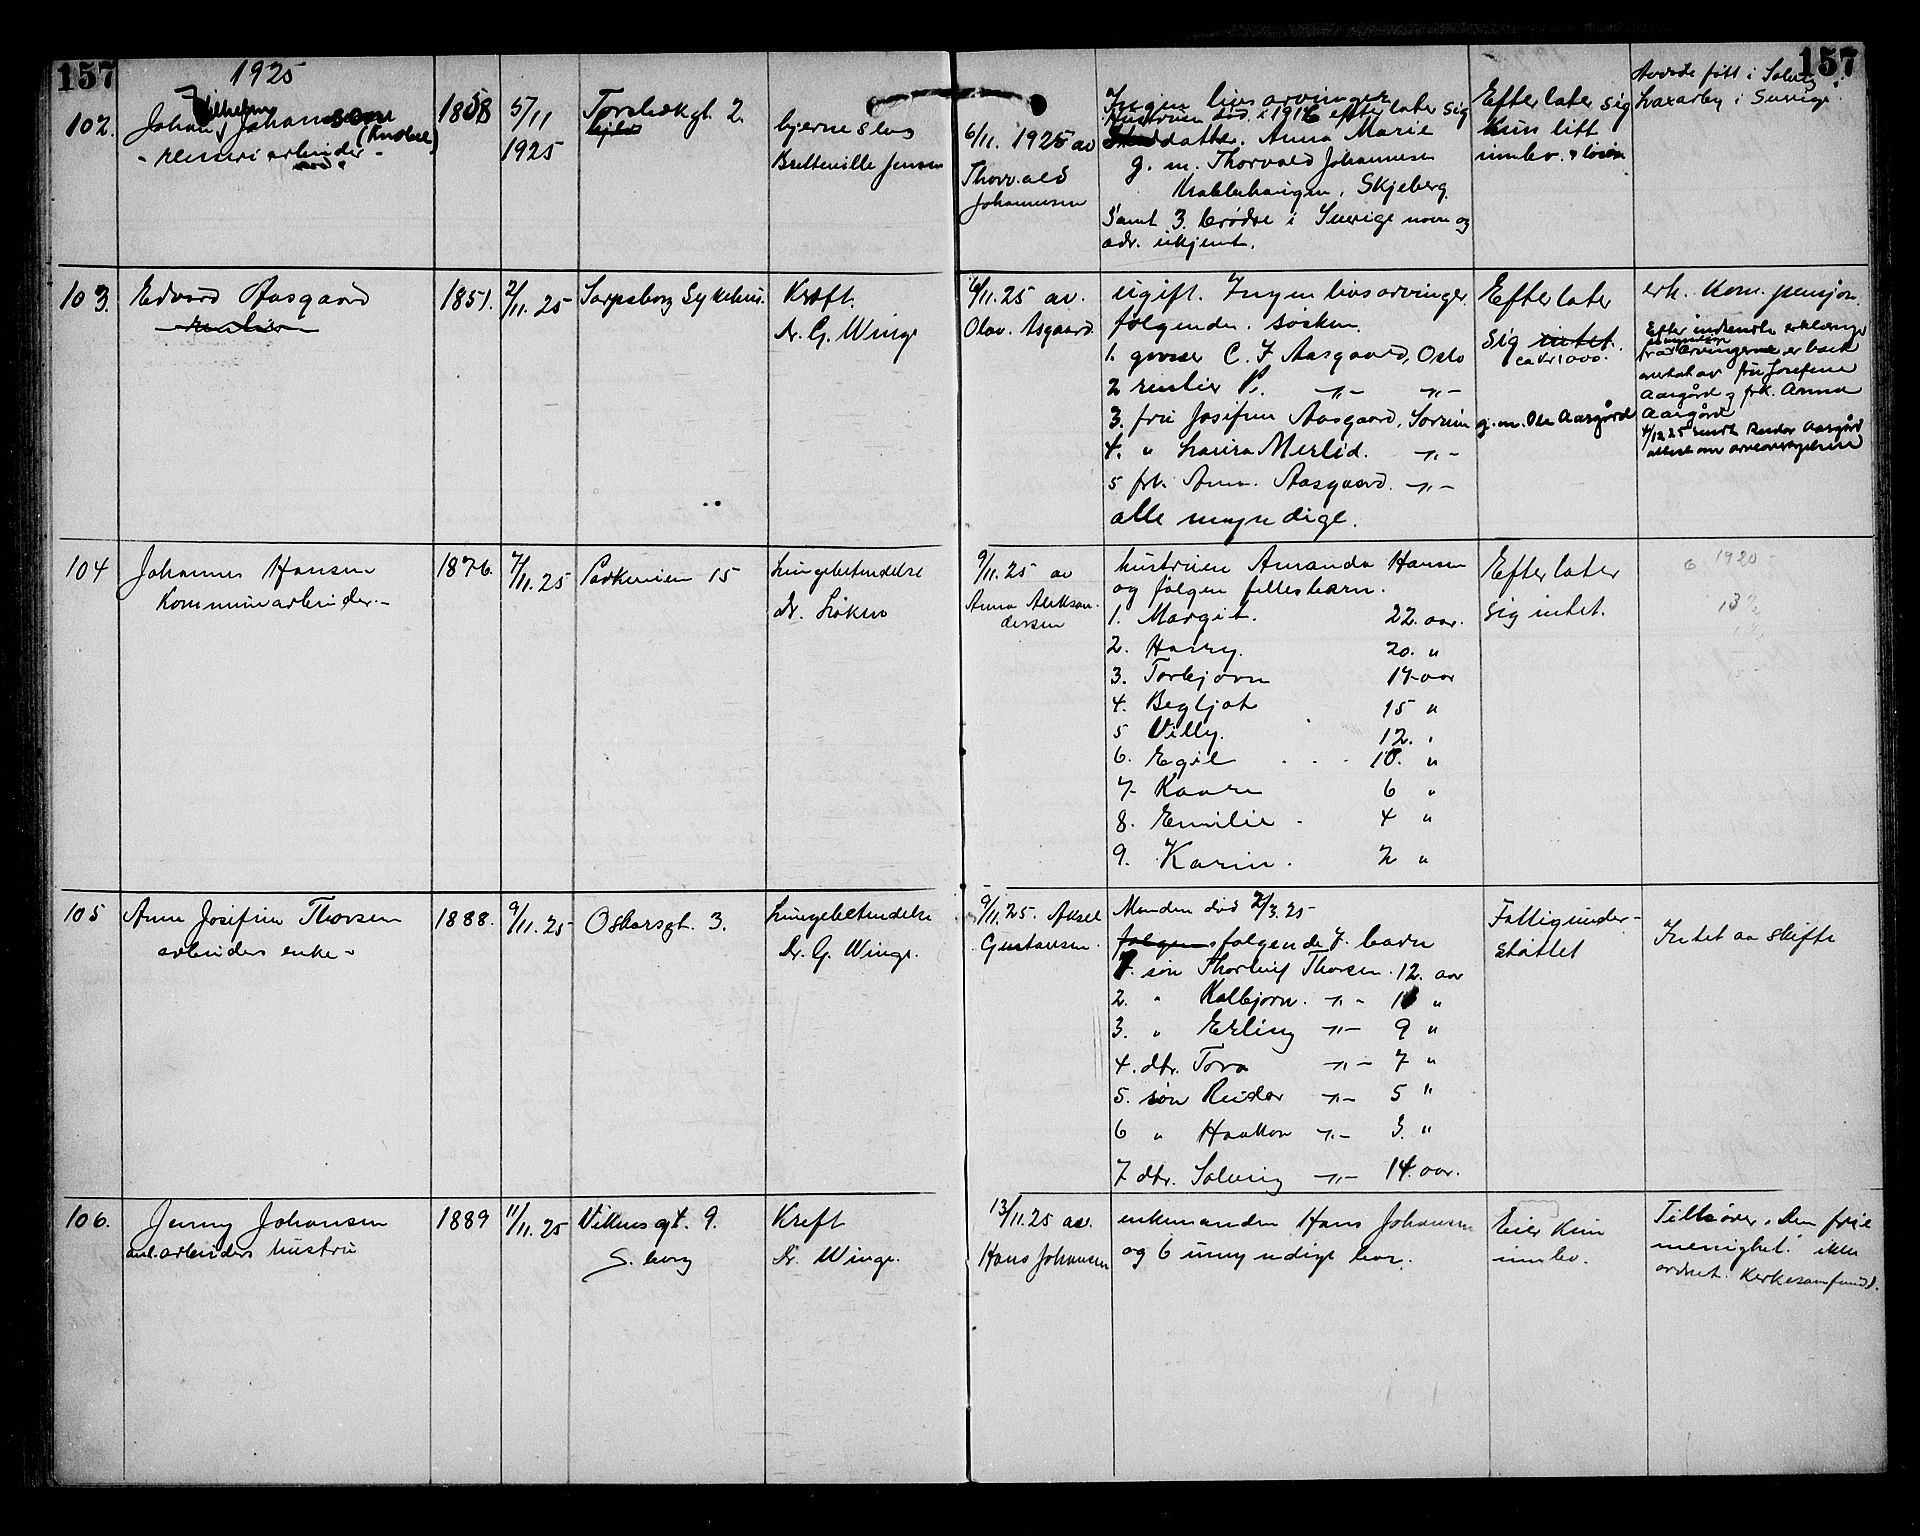 157
1925
157
102.
Vilhelm
Johan Johansson
(Knobel)
arbeider -
1858
5/11
1925
Torsbekgt. 2.
hjerneslag
Bretteville Jensen
6/11. 1925 av
Thorvald
Johannesen
Ingen livsarvinger
Hustruen død i 1916 efterlater sig
datter. Anna Marie
g. m. Thorvald Johannesen
Skjeberg.
Samt 3 brødre i Sverige navn og
adr. ukjent.
Efterlater sig
kun litt
innbo.
Avøde født i
Laxarby i Sverige.
103.
Edvard Aasgaard
rentier
1851.
2/11.25
Sarpsborg Sykehus.
Kræft.
Dr. G. Winge
6/11.25 av.
Olav. Asgaard
ugift. Ingen livsarvinger
følgende. søsken.
1. grosser C. F. Aasgaard, Oslo
2 rentier P. -"- -"-
3. fru Josefine Aasgaard, Sorum g.m. Ole Aasgård
4. " Laura Merlid. -"-
5 frk. Anna. Aasgaard. -"-
alle myndige.
Efterlater
sig intet.
ca kr 1000.
erk. kom. pensjon.
Efter indsendte erklæringer
fra arvingerne er boet
overtat av fru Josefine
Aasgård og frk. Anna
Aasgård
4/12 25 sendt Reidar Aasgård
attest om arveovertagelsen
104
Johannes Hansen
Kommunearbeider. -
1876.
7/11.25
Parkveien 15
Lungebetendelse
dr. Løken
9/11.25 av
Anna Aleksan-
dersen
hustruen Amanda Hansen
og følgen fellesbarn.
1. Margit. 22. aar.
2. Harry. 20. "
3. Torbjørn 17 aar
4. Bergljot 15 "
5 Villy. 12. "
6. Egil 10. "
7. Kaare 6 "
8. Emilie - 4 "
9. Karin. 2 "
Efterlater
sig intet.
1920 -
105
Anne Josefine Thorsen
arbeiders enke -
1888.
9/11.25
Oskarsgt. 3.
Lungebetendelse
Dr. G. Winge.
9/11.25. Aksel
Gustavsen.
Manden død 2/3.25
følgende 7. barn
1. søn Thorleif Thorsen. 12. aar
2. " Kolbjørn. -"- "
3. " Erling -"- 9 "
4. dtr. Tora -"- 7 "
5. søn Reidar -"- 5 "
6 " Haakon -"- 3. "
7 dtr. Solveig -"- 14. aar.
Fattigunder-
støttet
Intet aa skifte
106.
Jenny Johansen
anl. arbeiders hustru
1889
11/11.25
Vikensgt. 9.
S. borg
Kreft
Dr. Winge.
13/11.25 av.
Hans Johansen
enkemanden Hans Johansen
og 6 umyndige barn.
Eier kun
innbo.
Tilhører "Den frie
menighet." ikke
ordnet kirkesamfund.